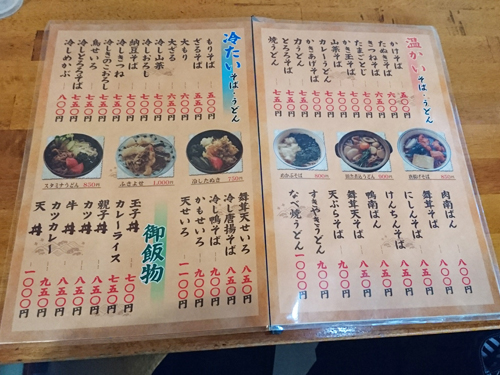 温かい そば・うどん
かけそば 五〇〇円
たぬきそば 六〇〇円
きつねそば 六〇〇円
たまごとじ
かき玉そば
山菜そば
カレーうどん
かきあげそば
力うどん
とろろそば 七五〇円
焼うどん 七五〇円
めかぶそば 800円
うどん 900円
唐揚げそば 850円
肉南ばん 八五〇円
舞茸そば 八五〇円
にしんそば 八五〇円
けんちんそば 八五〇円
鴨南ばん 九五〇円
天ぷらそば 九五〇円
すきやきうどん 九五〇円
なべ焼うどん 一〇〇〇円
冷たい そば・うどん
もりそば 五〇〇円
ざるそば 五五〇円
大もり 六五〇円
大ざる
冷し山菜
冷しおろし
納豆そば
冷しきつね
冷しきのこおろし
鳥せいろ 七五〇円
冷しとろろそば 七五〇円
冷しめかぶ 八〇〇円
冷したぬき 750円
ふきよせ 1,000円
スタミナうどん 850円
舞茸天せいろ 八五〇円
冷し唐揚そば 八五〇円
冷し鴨そば 九〇〇円
かもせいろ 九〇〇円
天せいろ 一一〇〇円
御飯物
玉子丼 七〇〇円
カレーライス 七五〇円
親子丼 八五〇円
カツ丼 八五〇円
牛丼 八五〇円
カツカレー 九五〇円
天丼 一〇〇〇円